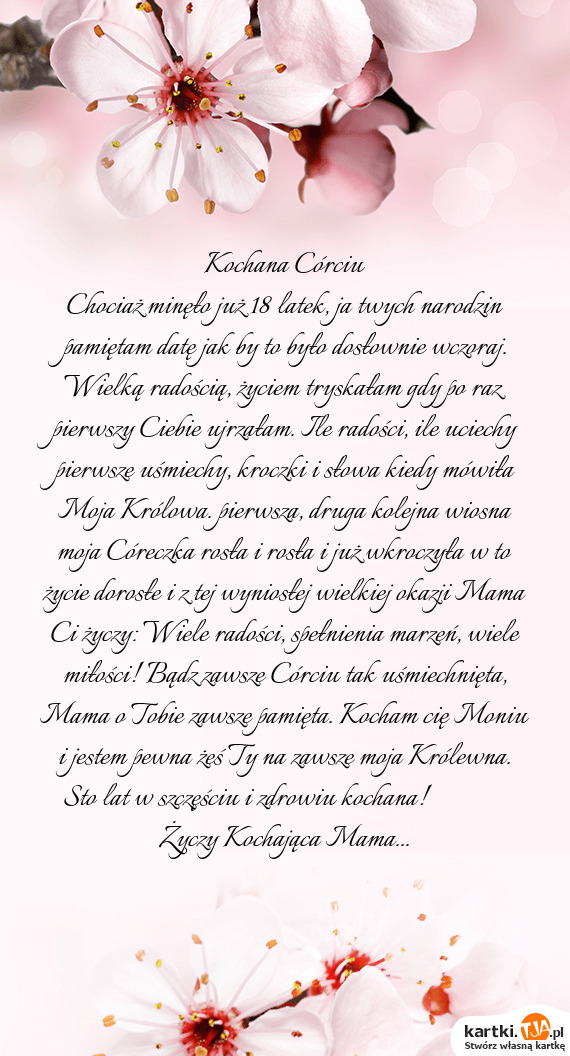 Kochana Córciu
Chociaż minęło już 18 latek, ja twych narodzin
pamiętam datę jak by to było dosłownie wczoraj.
Wielką radością, życiem tryskałam gdy po raz
pierwszy Ciebie ujrzałam. Ile radości, ile uciechy
pierwsze uśmiechy, kroczki i słowa kiedy mówiła
Moja Królowa. pierwsza, druga kolejna wiosna
moja Córeczka rosła i rosła i już wkroczyła w to
życie dorosłe i z tej wyniosłej wielkiej okazji Mama
Ci życzy: Wiele radości, spełnienia marzeń, wiele
miłości! Bądz zawsze Córciu tak uśmiechnięta,
Mama o Tobie zawsze pamięta. Kocham cię Moniu
i jestem pewna żęś Ty na zawsze moja Królewna.
Sto lat w szczęściu i zdrowiu kochana!
Życzy Kochająca Mama...
kartki.TJA.pl
Stwórz własną kartkę